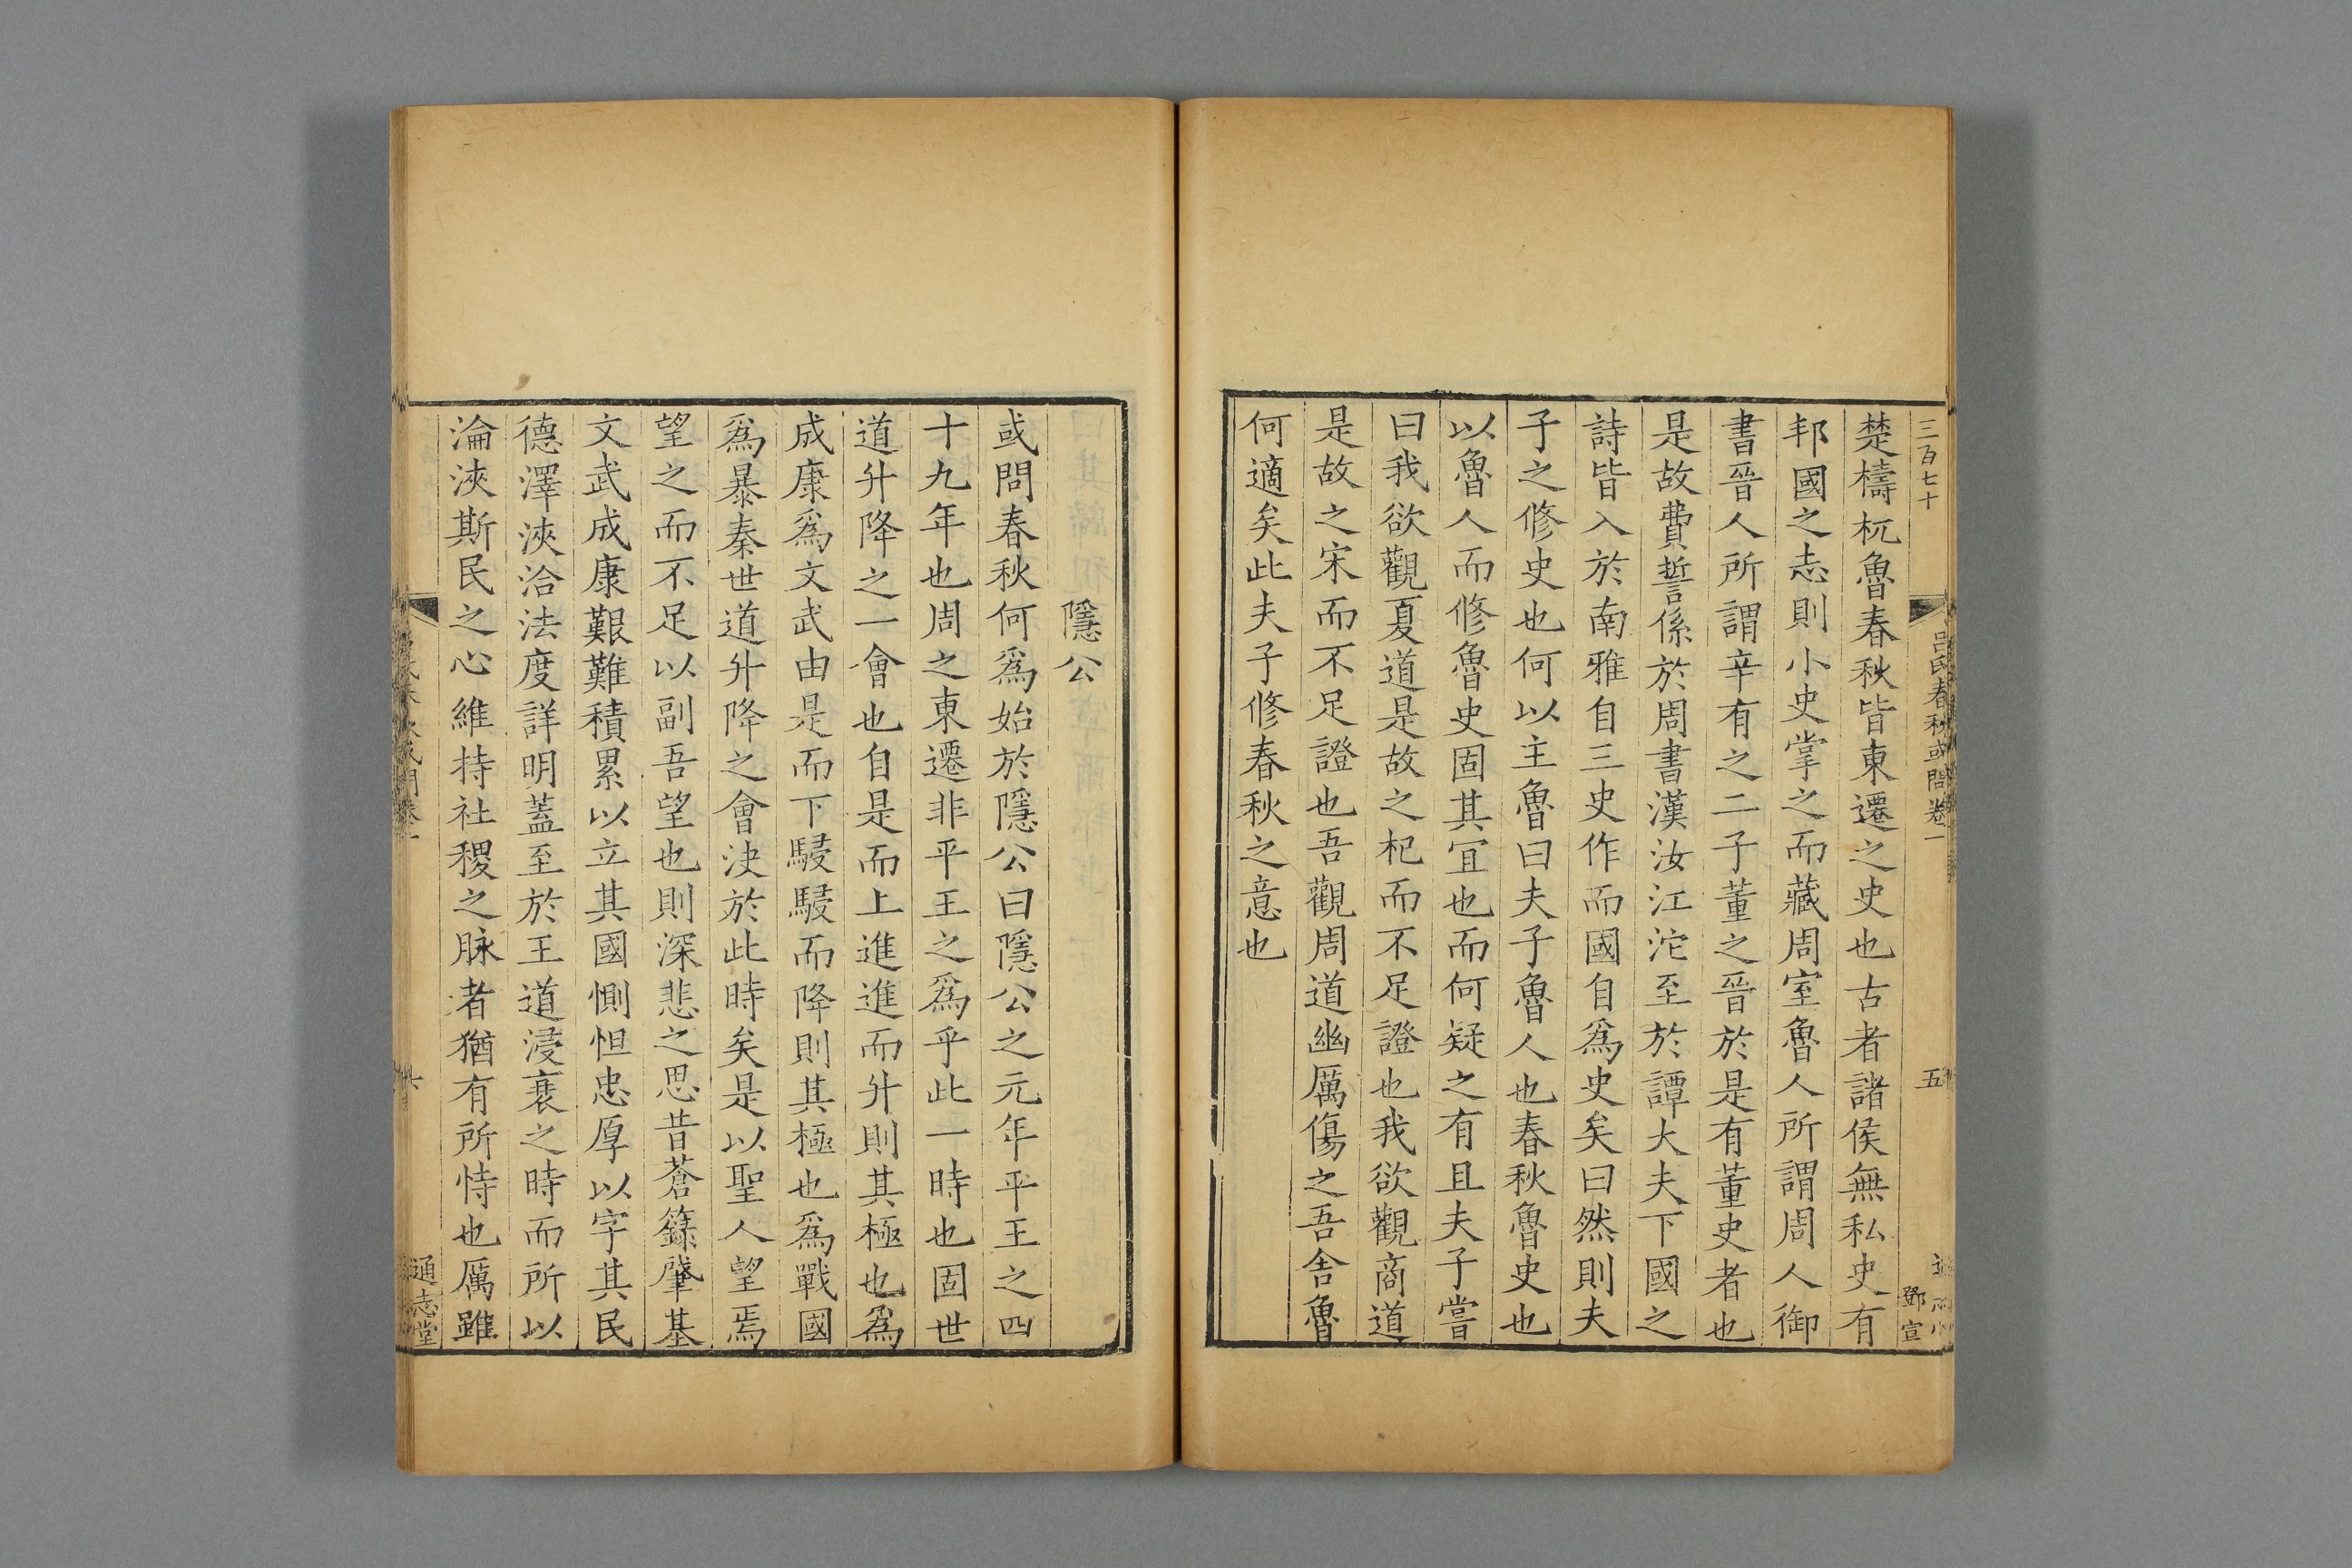 三百七十
吕氏春秋或問卷一
五
鄧宣
楚檮杌魯春秋皆東遷之史也古者諸侯無私史有
邦國之志則小史掌之而藏周室魯人所謂周人御
書晉人所謂辛有之二子董之晉於是有董史者也
是故費誓係於周書漢汝江沱至於譚大夫下國之
詩皆入於南雅自三史作而國自爲史矣曰然則夫
子之修史也何以主魯曰夫子魯人也春秋魯史也
以魯人而修魯史固其宜也而何疑之有且夫子嘗
曰我欲觀夏道是故之杞而不足證也我欲觀商道
是故之宋而不足證也吾觀周道幽厲傷之吾舍魯
何適矣此夫子修春秋之意也
隱公
或問春秋何爲始於隱公曰隱公之元年平王之四
十九年也周之東遷非平王之爲乎此一時也固世
道升降之一會也自是而上進進而升則其極也爲
成康爲文武由是而下駸駸而降則其極也爲戰國
爲暴秦世道升降之會決於此時矣是以聖人望焉
望之而不足以副吾望也則深悲之思昔蒼籙肇基
文武成康艱難積累以立其國惻怛忠厚以字其民
德澤浹洽法度詳明蓋至於王道浸衰之時而所以
淪浹斯民之心維持社稷之脉者猶有所恃也厲雖
通志堂